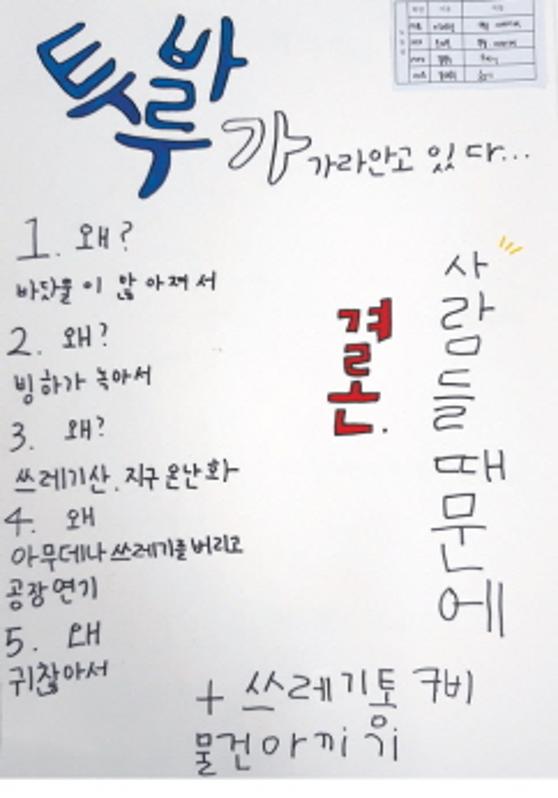 투발루가 가라안고 있다...
1. 왜?
바닷물이 많아져서
2. 왜?
빙하가 녹아서
3. 왜?
쓰레기산. 지구온난화
4. 왜
아무데나 쓰레기를 버리고
공장연기
5. 왜
귀찮아서
결론.
사람들때문에
+ 쓰레기통 구비
물건아끼기